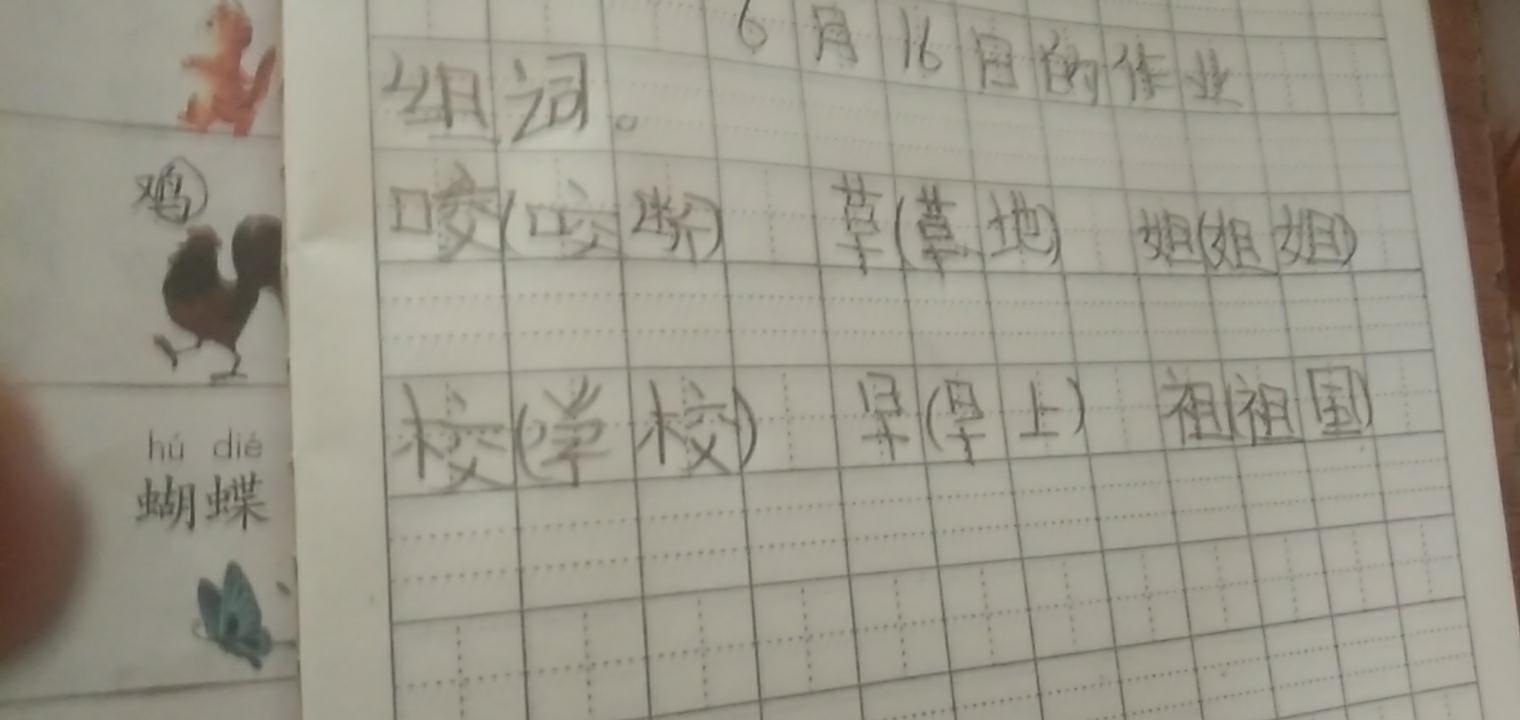 6月16日的作业
组词。
咬(咬断) 草(草地) 姐(姐姐)
校(学校) 早(早上) 祖(祖国)
鸡
hú dié
蝴蝶